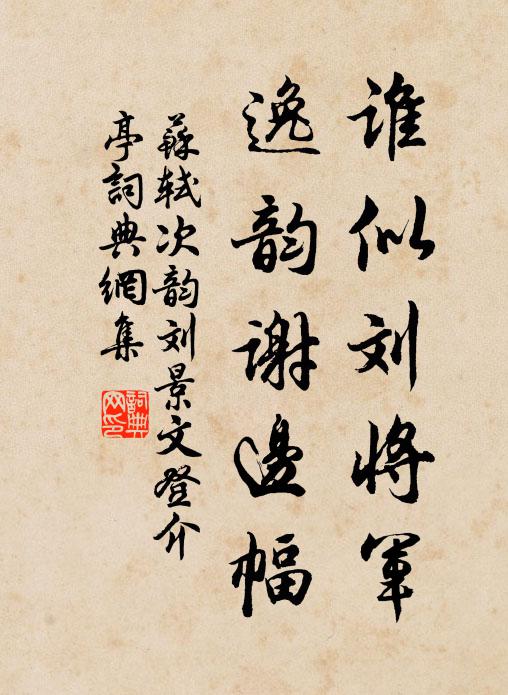 谁似刘将军
逸韵谢邊幅
蘇轼次韵刘景文登介
亭詞典網集
詞典
网印